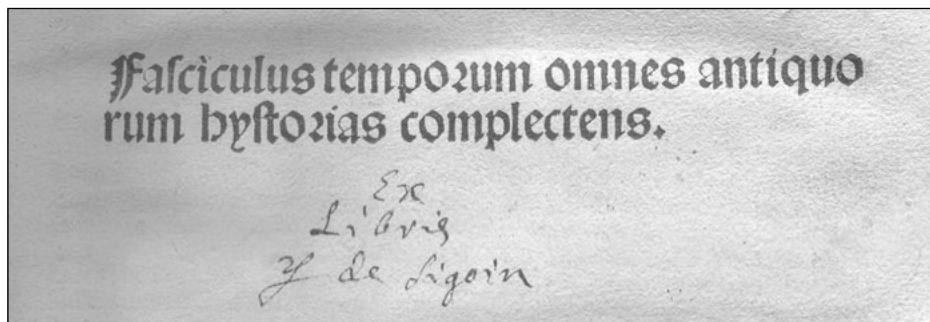 Faſciculus tempoꝛum omnes antiquo
rum hyſtoꝛias complectens.
Ex
Libris
de Sigoin